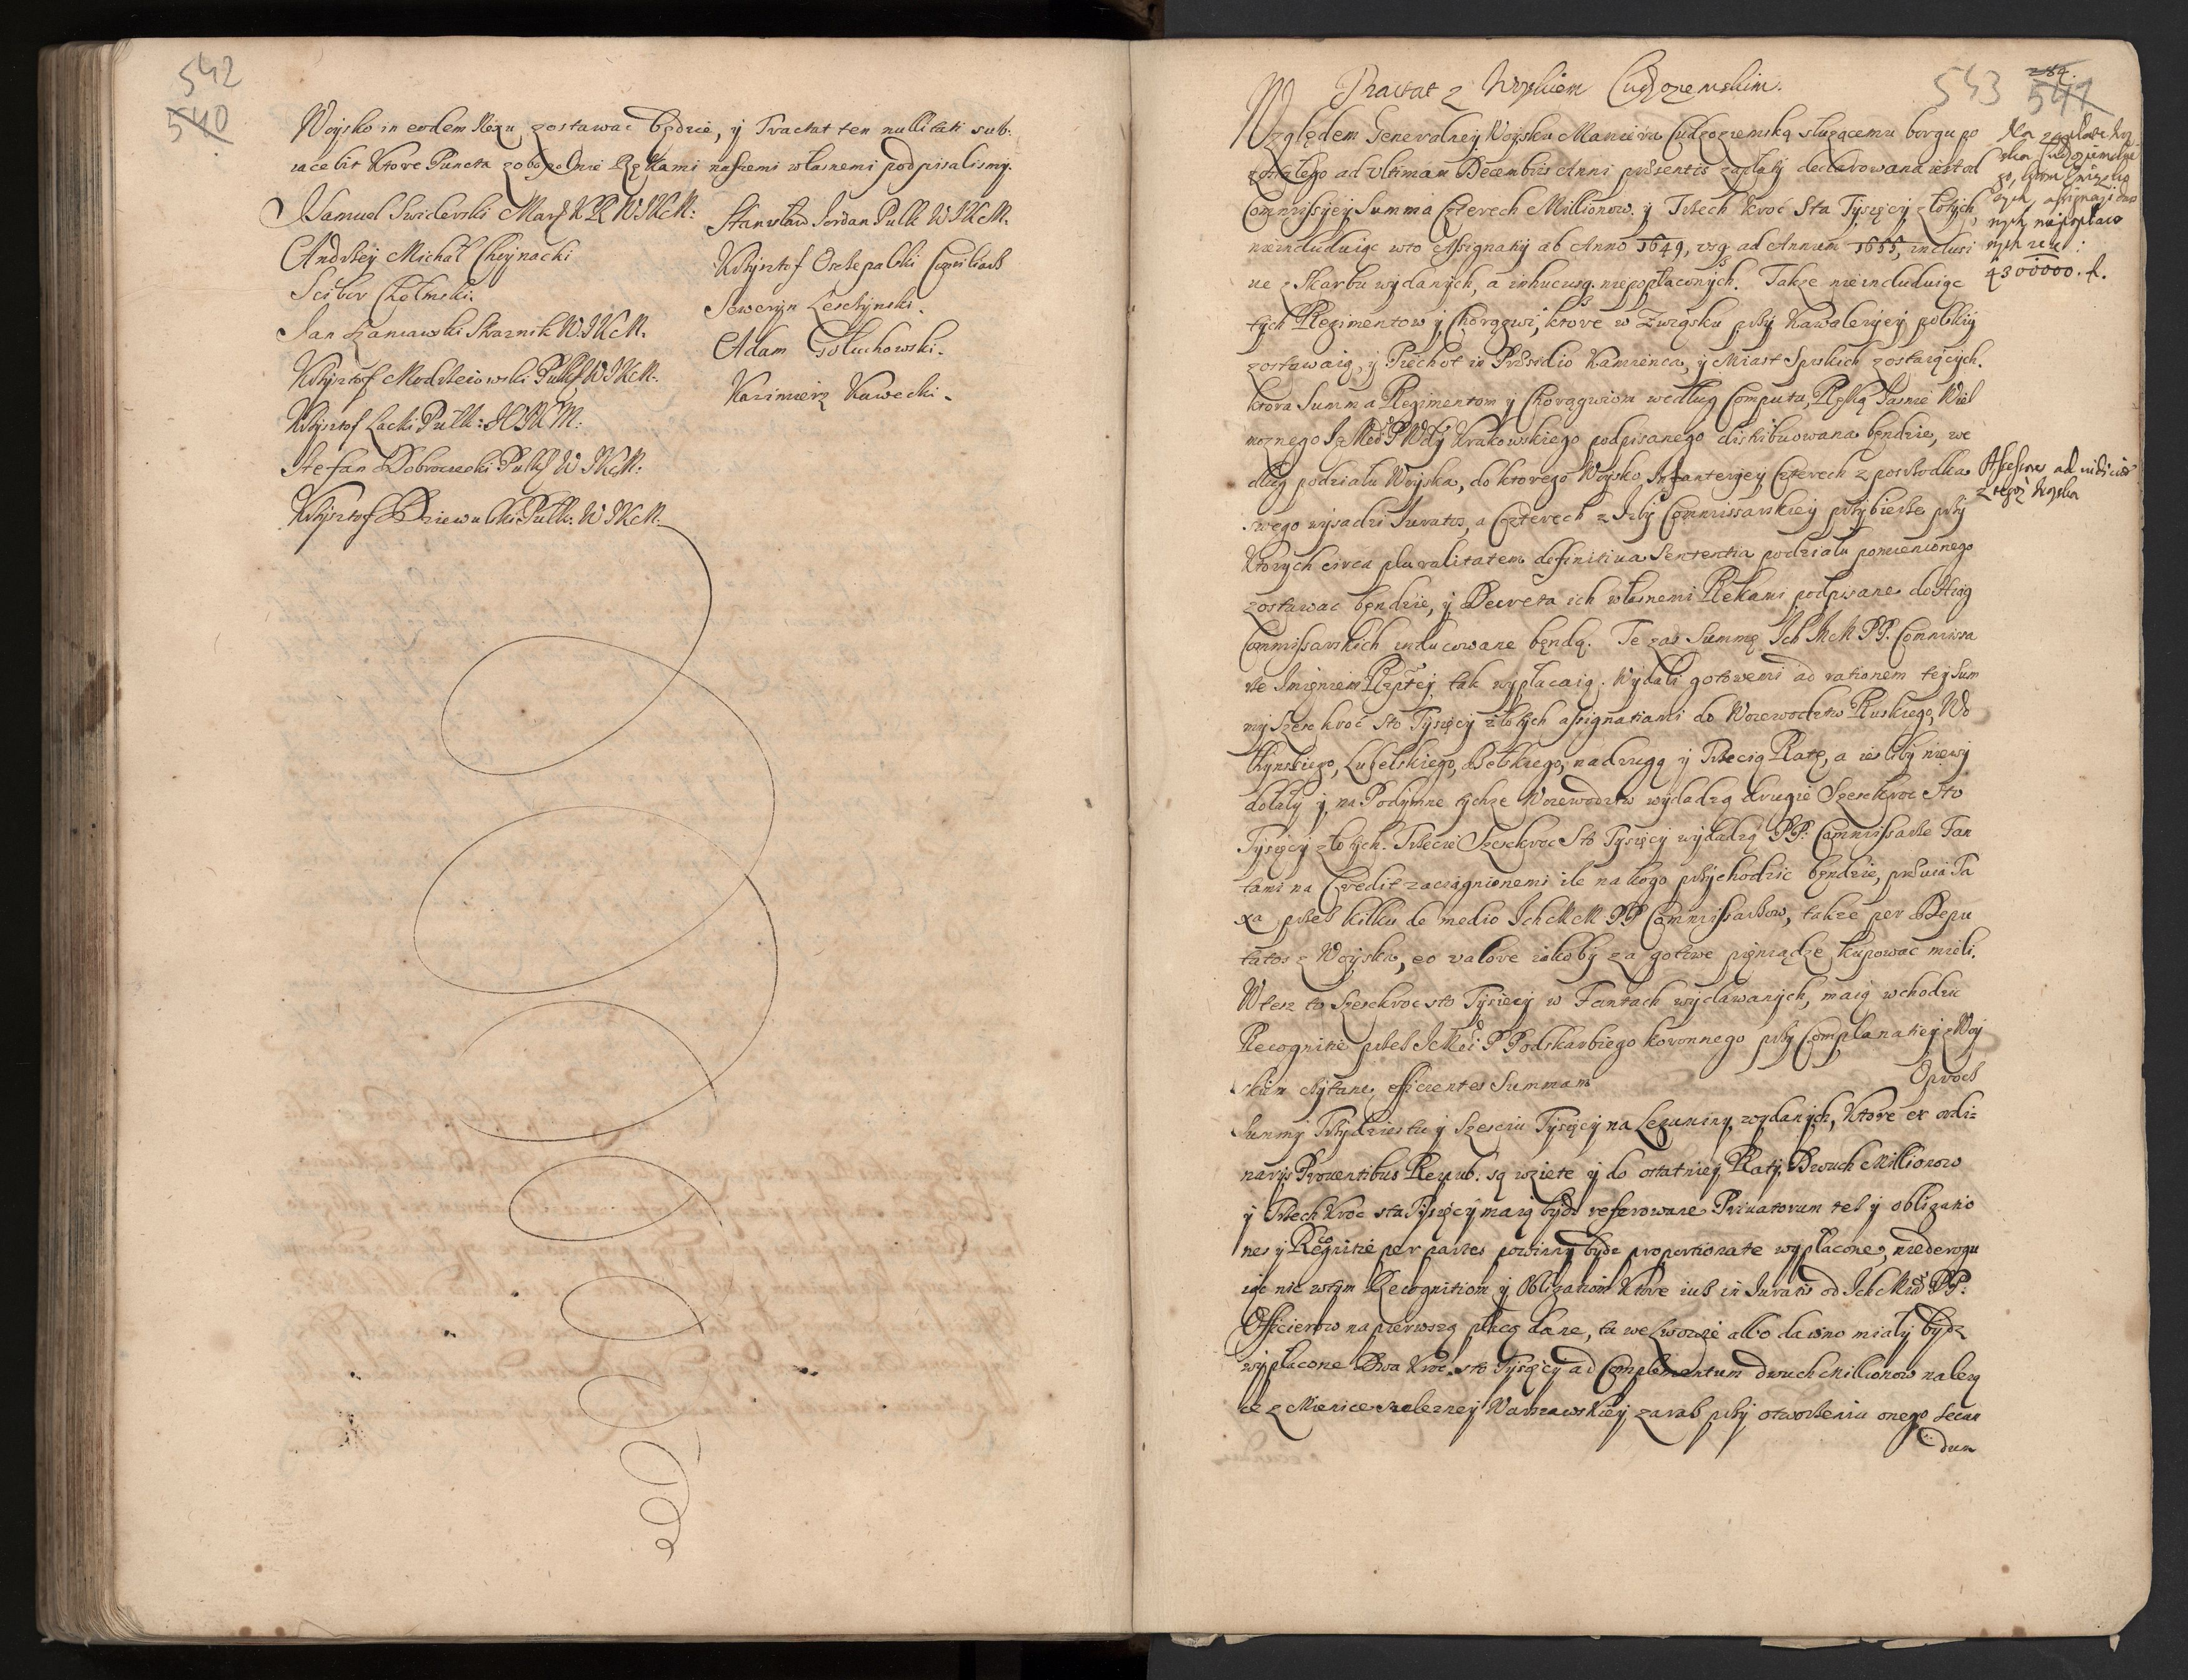 542
540
Woysko in eodem Nexu zostawac będzie, ÿ Tractat ten nullitati sub:
iacebit Ktore Puncta zobopolnie Rękami naszemi własnemi podpisalismy.
Samuel Swiderski Marsz
Andrzey Michał Choynacki
Scibor Chełmski.
Jan Łaniewski Skarnik W JKM.
Krzysztof Modrzeiowski Pułk W JKM.
Krzysztof Łacki Pułk: JKM:
Stefan Dobrowecki Pułk W JKM:
Krzysztof Dziewulski Pułk. W JKM.
Stanisław Jordan Pułk W JKM.
Krzysztof Orchepalski
Seweryn Leszczynski.
Adam Gołuchowski.
Kazimierz Kawecki.
543
541
Tractat z Woyskiem Cudzozemskim.
Względem Generalney Woysku Maniera Cudzoziemską służącemu borgu po
zostałego ad Ultimam Decembris Anni præsentis zapłaty declarowana iest od
Commissyey Summa Czterech Millionow. ÿ Trzech kroć Sta Tysięcy złotych,
nieincluduiąc wto Assignatiÿ ab Anno 1649, usq. ad Annum 1655, inclusi
ve z Skarbu wydanych, a inhucusq. niepopłaconych. Takze nieincluduiąc
tych Regimentow ÿ Chorągwi, ktore w Związku przÿ Kawaleryey polskiÿ
zostawaią, ÿ Piechot in Præsidio Kamienca, ÿ Miast Spiskich zostaiących.
ktora Summa Regimentom ÿ Chorągwiom według Computu, Ręką Jasnie Wiel
moznego Je Mci P Wdÿ Krakowskiego podpisanego distribuowana będzie, we
dług podziału Woyska, do ktorego Woysko Infanteryey Czterech z posrzodka
swego wysadzi Iuratos, a Czterech z Izbÿ Commissarskiey przybierze przÿ
Ktorych circa pluralitatem deffinitiua Sententia podziału pomienionego
zostawac będzie, ÿ Decreta ich własnemi Rękami podpisane do Xiąg
Commissarskich inducowane będą. Te zas Summę Ich McM PP. Commissa
rze Imieniem Rzptey tak wypłacaią. Wydali gotowemi ad rationem tey Sum
mÿ Szesc kroć sto Tysięcy złotych assignatiami do Woiewodztw Ruskiego, Wo
łynskiego, Lubelskiego, Bełskiego, na drugą ÿ Trzecią Ratę, a iesliby niewy
dołały ÿ na Podymne tychze Woiewodztw wydadzą drugie Szesckroc Sto
Tysięcy złotych. Trzecie Szesckroc Sto Tysięcy wydadzą PP. Commissarze Fan
tami na Credit zaciągnionemi ile na kogo przychodzic będzie, præuia Ta
xa przez kilku de medio Ich McM PP Commissarzow, takze per Depu
tatos z Woyska, eo valore iakoby za gotowe pieniądze kupować mieli.
W tesz to Szesckroc sto Tysięcy w Fantach wydawanych, maią wchodzic
Recognitie przez Je Mci P Podskarbiego koronnego przÿ Complanatiey z Woy
skiem czytane, efficientes Summam Oprocz
Summÿ Trzydziestu ÿ Szesciu Tysięcy na Lezuniny wydanych, Ktore ex ordi=
narÿs Prouentibus Reipub. są wziete ÿ do ostatniey Ratÿ, Dwuch Millionow
ÿ Trzech Kroc sta Tysięcy maią bydz referowane Priuatorum tesz ÿ obligatio
nes ÿ Recognitie per partes powinny bydz proportionate wypłacone, niederogu
iąc nic wtym Recognitiom ÿ Obligatiom Ktore iusz in Iuratis od Ich Mciow PP.
Officierow na pierwszą płacą dane, tu we Lwowie albo dawno miały bydz
wypłacone Dwa kroc sto Tysięcy ad Complementum dwuch Millionow nalezą
ce z Mienice srebrney Warszawskiey zaraz przÿ otworzeniu onego secun
dum
43 00000. f.
Assessores ad
z tegoz Woyska